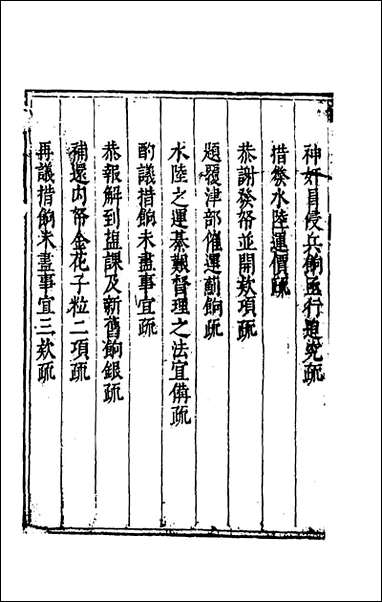 神奸冒侵兵餉亟行追究疏
措發水陸運價疏
恭謝發帑並開欵項疏
題覆津部催運薊餉疏
水陸之運綦艱督理之法宜備疏
酌議措餉未盡事宜疏
恭報解到鹽課及新舊餉銀疏
補還內帑金花子粒二項疏
再議措餉未盡事宜三欵疏